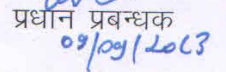 प्रधान प्रबन्धक
09/09/2023